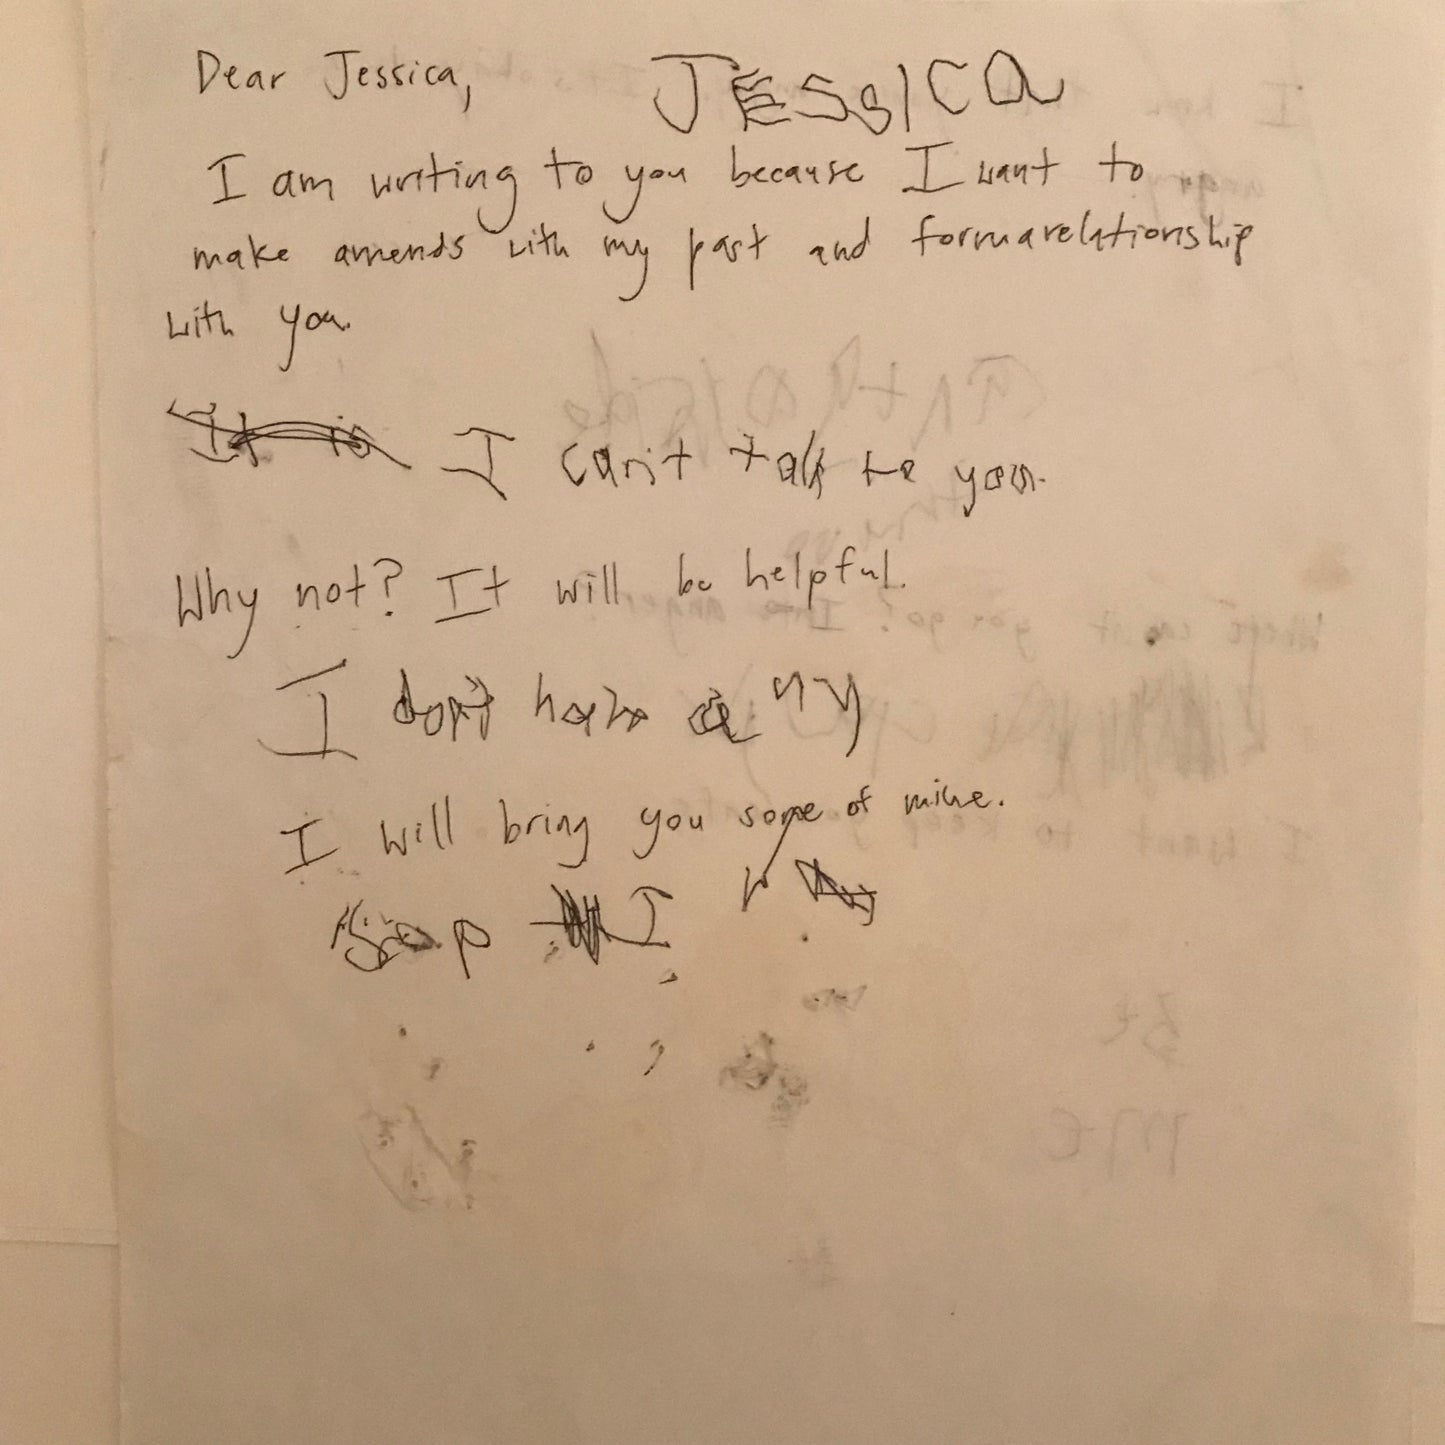 Dear Jessica, JESSICA
I am writing to you because I want to
make amends with my past and form a relationship
with you.
It is I can't talk to you.
Why not? It will be helpful.
I don't have any
I will bring you some of mine.
I